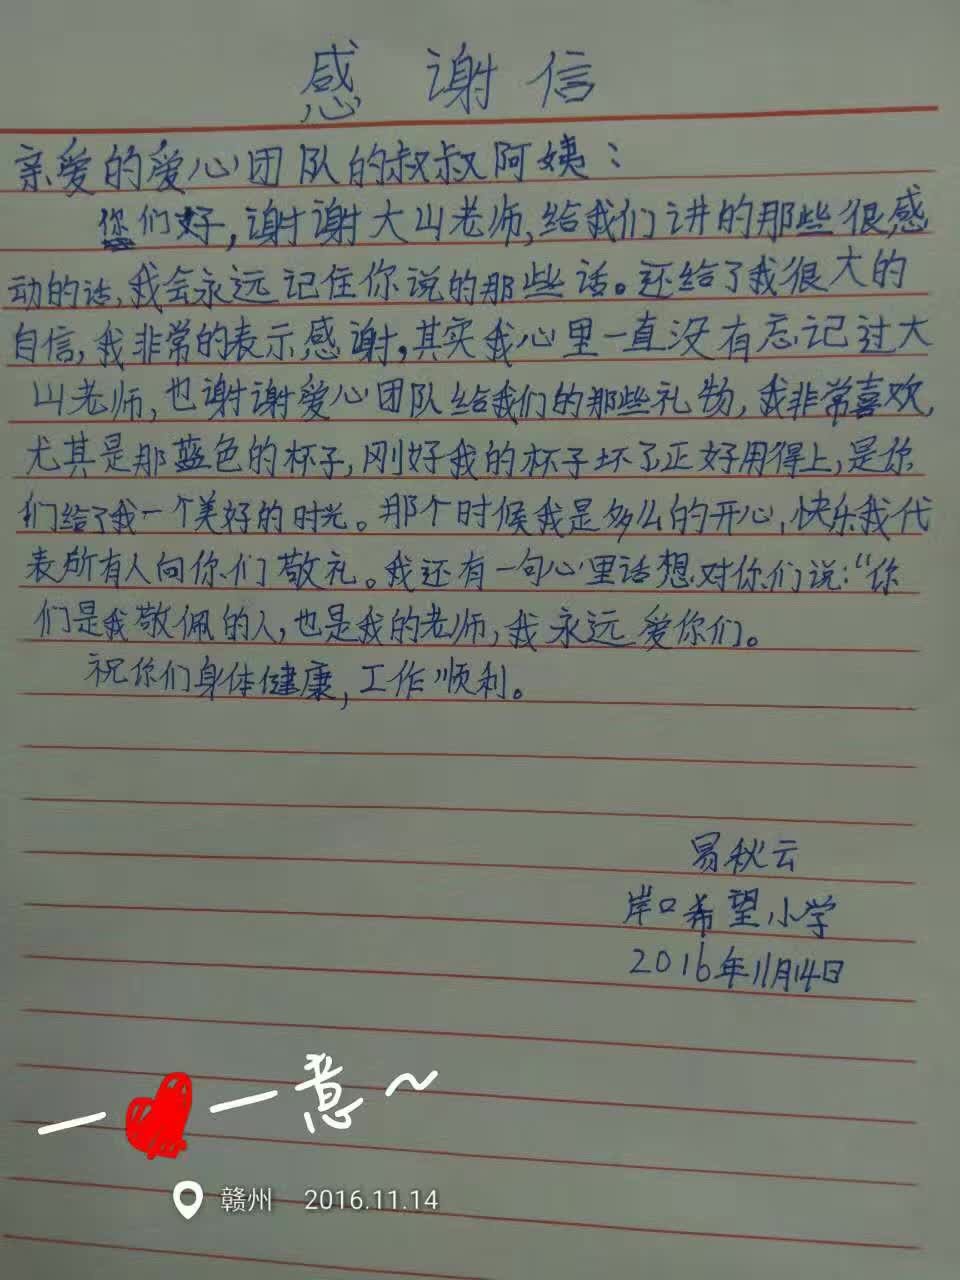 感谢信
亲爱的爱心团队的叔叔阿姨：
您们好，谢谢大山老师，给我们讲的那些很感
动的话，我会永远记住你说的那些话。还给了我很大的
自信，我非常的表示感谢，其实我心里一直没有忘记过大
山老师，也谢谢爱心团队给我们的那些礼物，我非常喜欢，
尤其是那蓝色的杯子，刚好我的杯子坏了正好用得上，是你
们给了我一个美好的时光。那个时候我是多么的开心，快乐我代
表所有人向你们敬礼。我还有一句心里话想对你们说：“你
们是我敬佩的人，也是我的老师，我永远爱你们。
祝你们身体健康，工作顺利。
易秋云
岸口希望小学
2016年11月14日
一一意~
赣州 2016.11.14